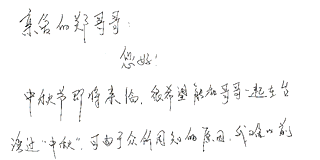 亲爱的郑哥哥:
您好!
中秋节即将来临,很希望能和哥哥一起在台
湾过“中秋”,可由于众所周知的原因,我难以前